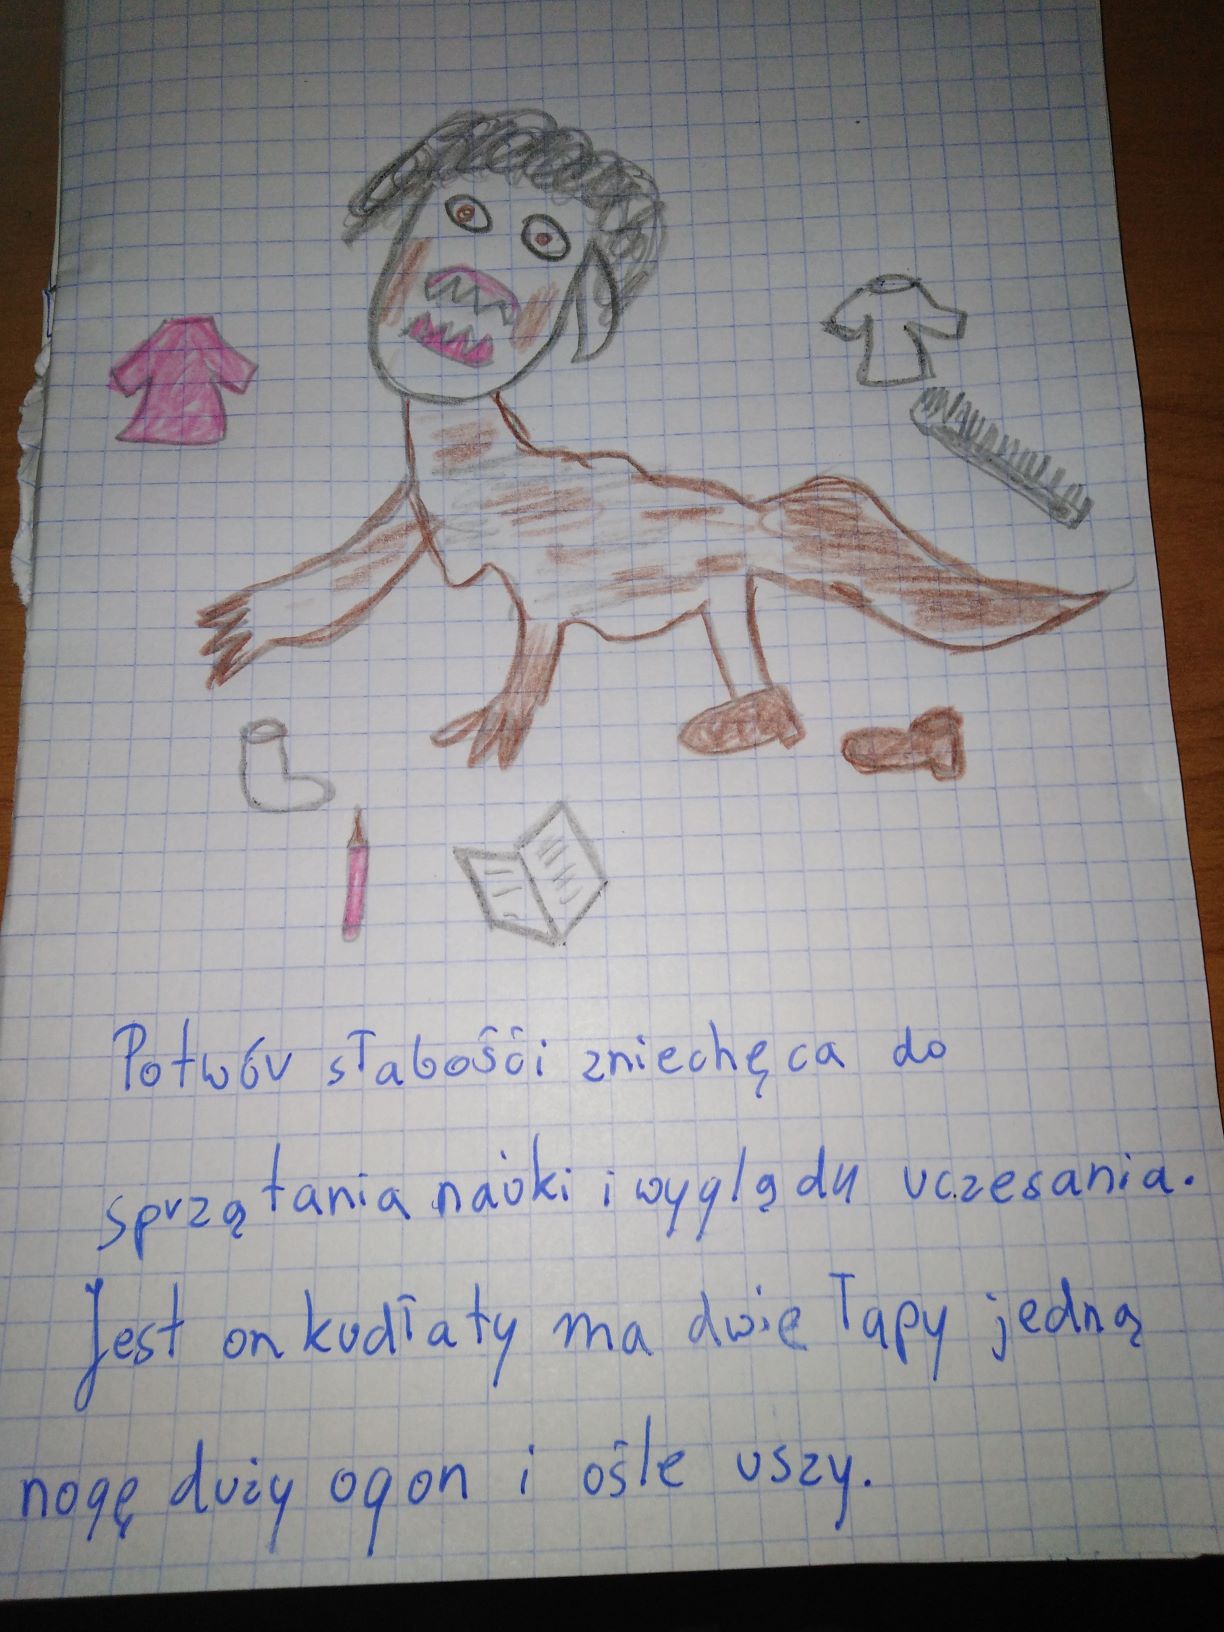 Potwór słabości zniechęca do
sprzątania nauki i wyglądu uczesania.
Jest on kudłaty ma dwie łapy jedną
nogę duży ogon i ośle uszy.